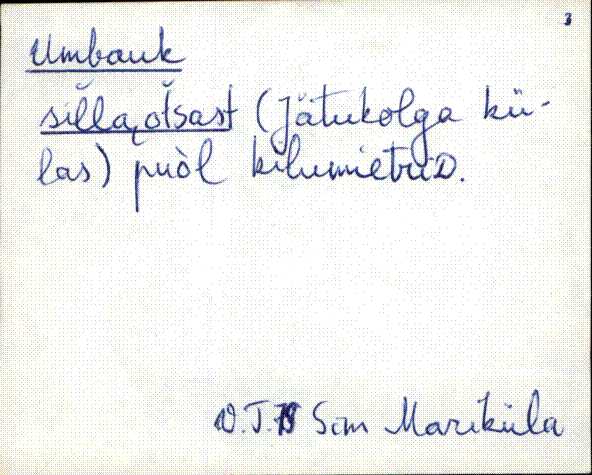 3
Umbauk
silla otsast (Jätukolga kü-
las) puòl kilumietrəD.
V.J. Sim Mariküla